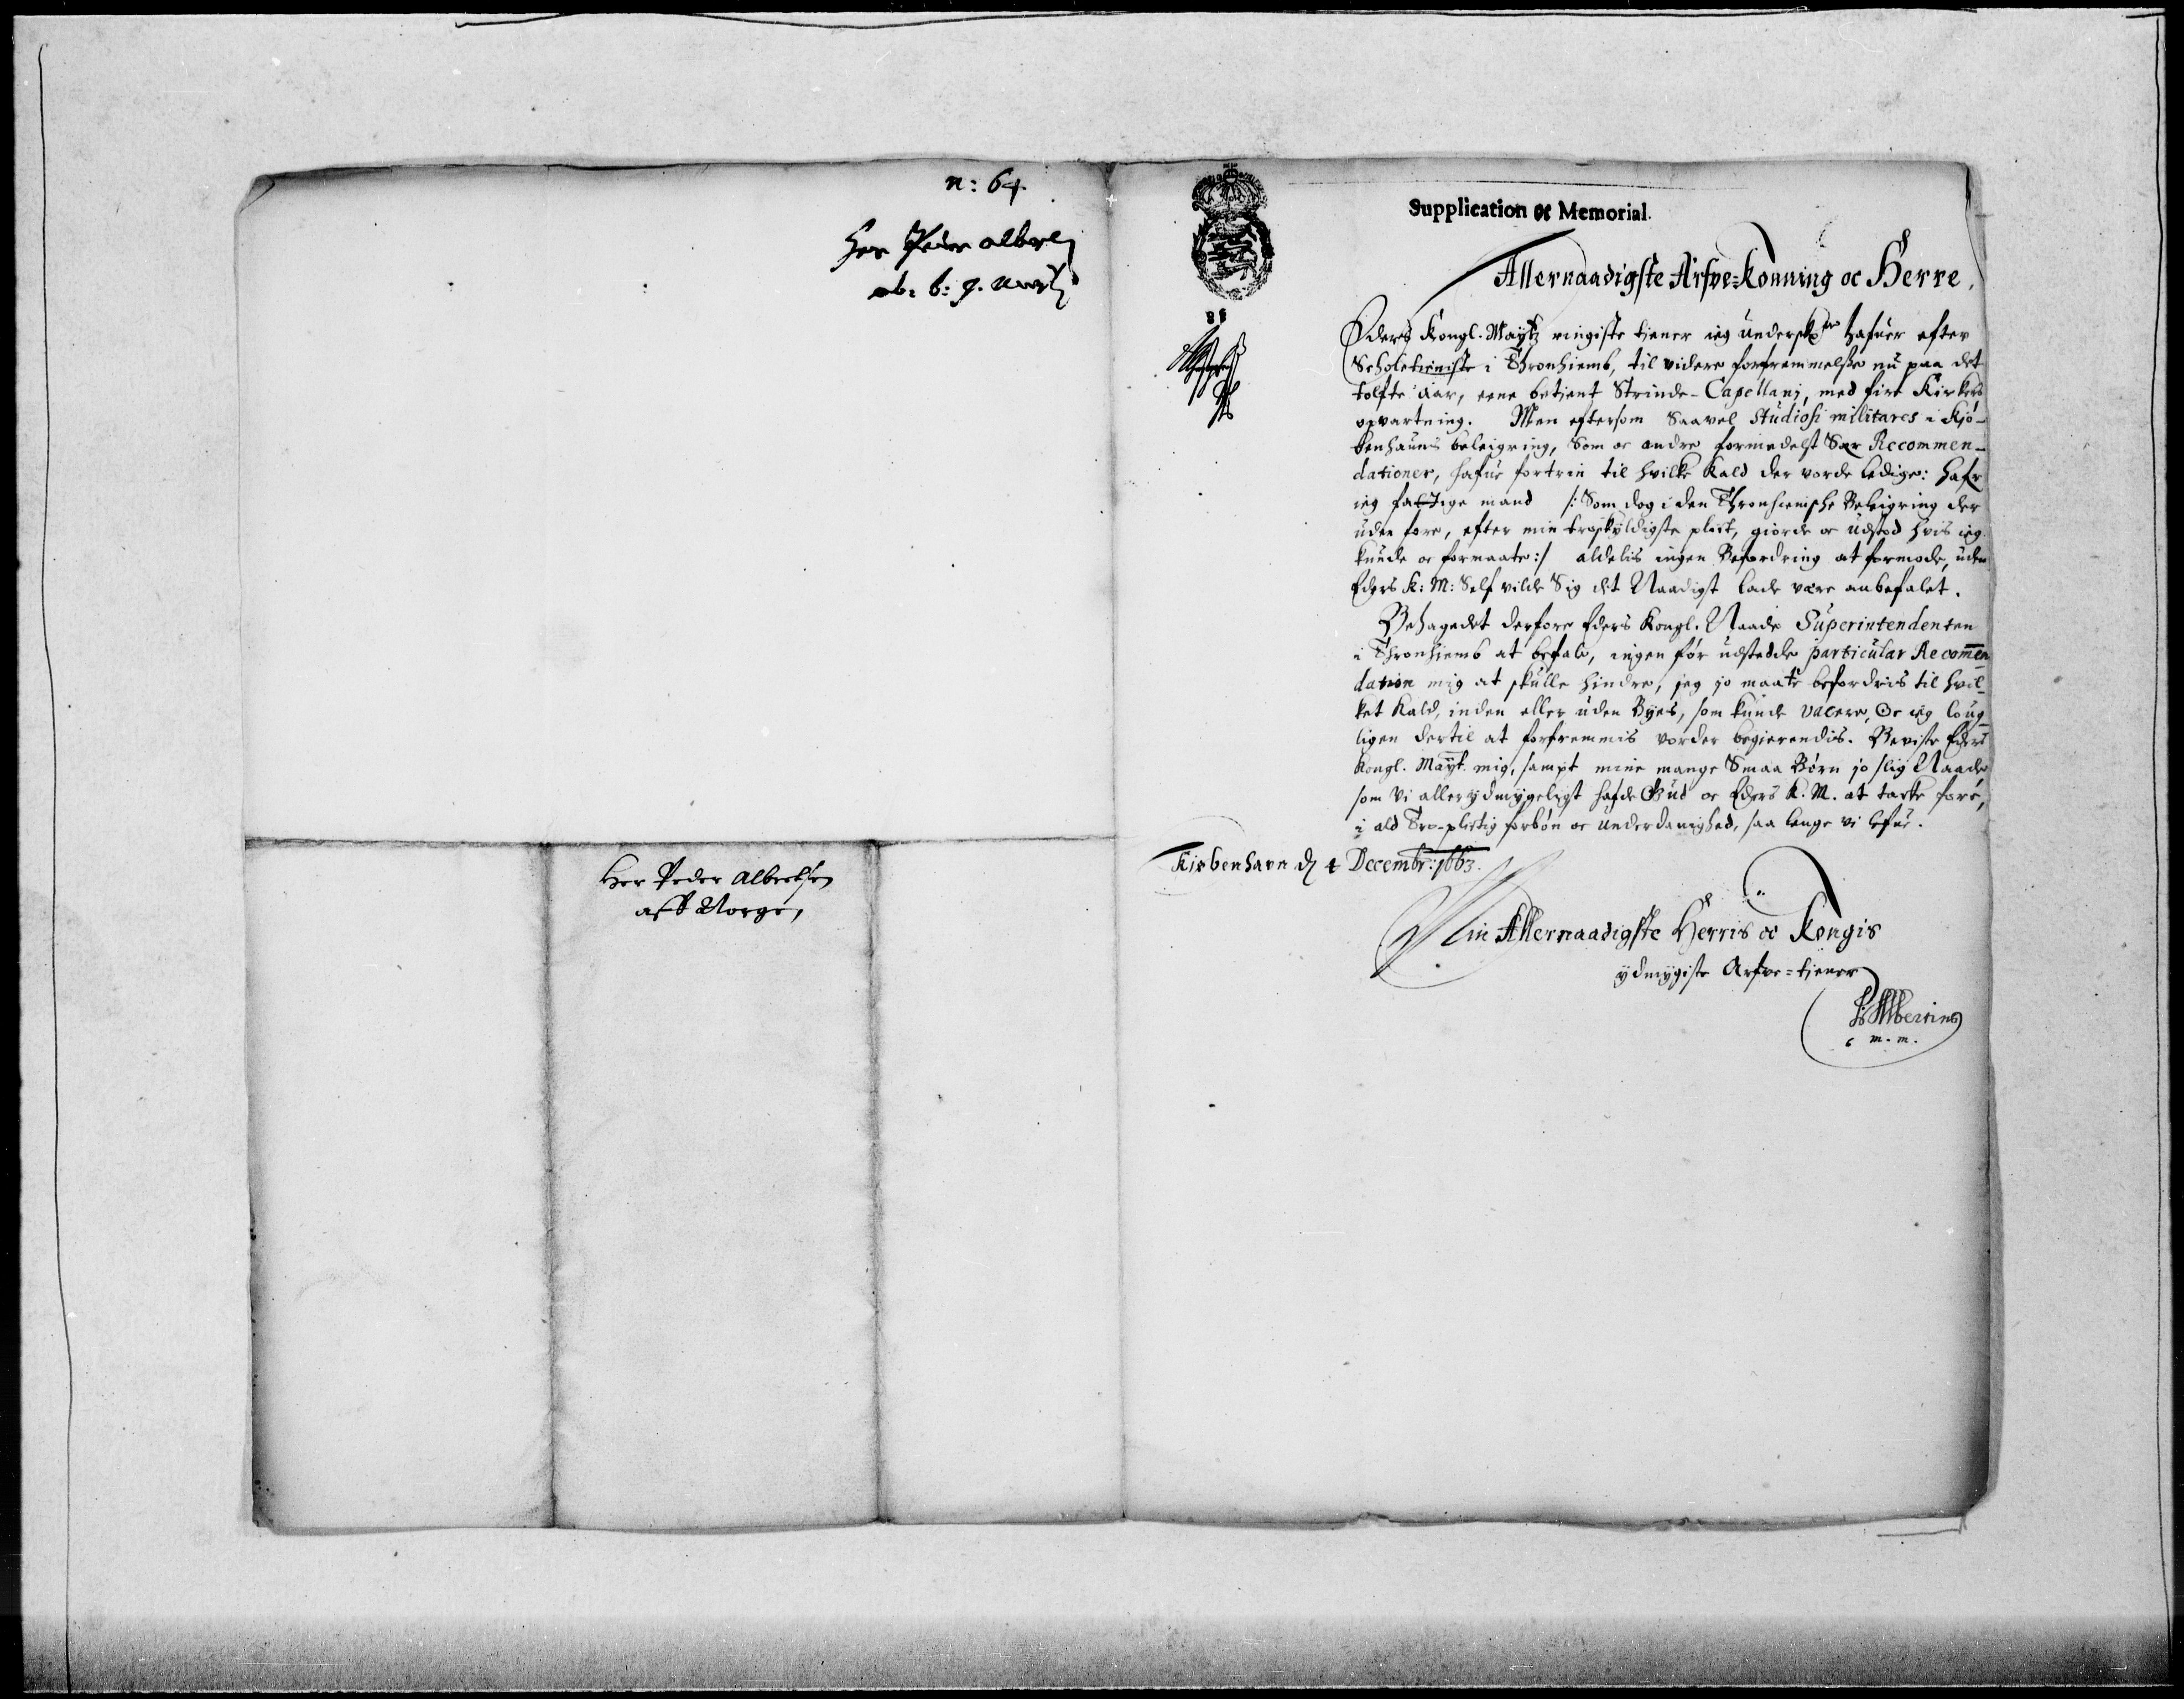 n: 64.
Her Peder Alber
Her Peder Albertsen
aff Norge,
Supplication oc Memorial.
Allernaadigste Arfve-Konning oc Herre,
Eders Kongl. Maytz ringiste tiener ieg undersk hafuer efter
Scholetieniste i Thronhiemb, til videre forfremmelse nu paa det
tolfte aar, eene betient Strinde-Capellanj, med fire Kirkers
opvartning. Men eftersom Saavel Studiosi militares i Kiø-
benhauns beleigring, Som oc andre formedelst Sær Recommen-
dationer, hafue fortrin til hvilke Kald der vorde ledige: hafr
ieg fattige mand /: Som dog i den Thronhiemske Beleigring der
uden fore, efter min troskyldigste plict, giorde oc udstod hvis ieg
kunde oc formaate :/ aldelis ingen Befordring at formode, uden
Eders K: M: Self vilde Sig det Naadigst lade være anbefalet.
Behagedet derfore Eders Kongl. Naade Superintendenten
i Thronhiemb at befale, ingen før udstedde particular Recom̄en
dation mig at skulle hindre, jeg jo maate befordris til hvil-
ket Kald, inden eller uden Byes, som kunde vacere, Oc ieg loug-
ligen dertil at forfremmis vorder begierendis. Beviste Eders
Kongl. Mayt. mig, sampt mine mange Smaa Børn jo slig Naade,
som Vi allerydmygeligst hafde Gud oc Eders K. M. at tacke fore,
i ald Tro-plictig forbøn oc Underdanighed, saa lenge vi lefue.
Kiøbenhavn d 4 Decembr: 1663.
Min Allernaadigste Herris oc Kongis
ydmygiste Arfve-tiener
P: Albertins
m. m.